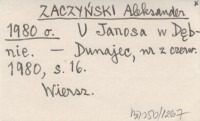 ZACZYŃSKI Aleksander
1980 o. U Janosa w Dęb-
nie. — Dunajec, nr z czerw.
1980, s. 16.
Wiersz.